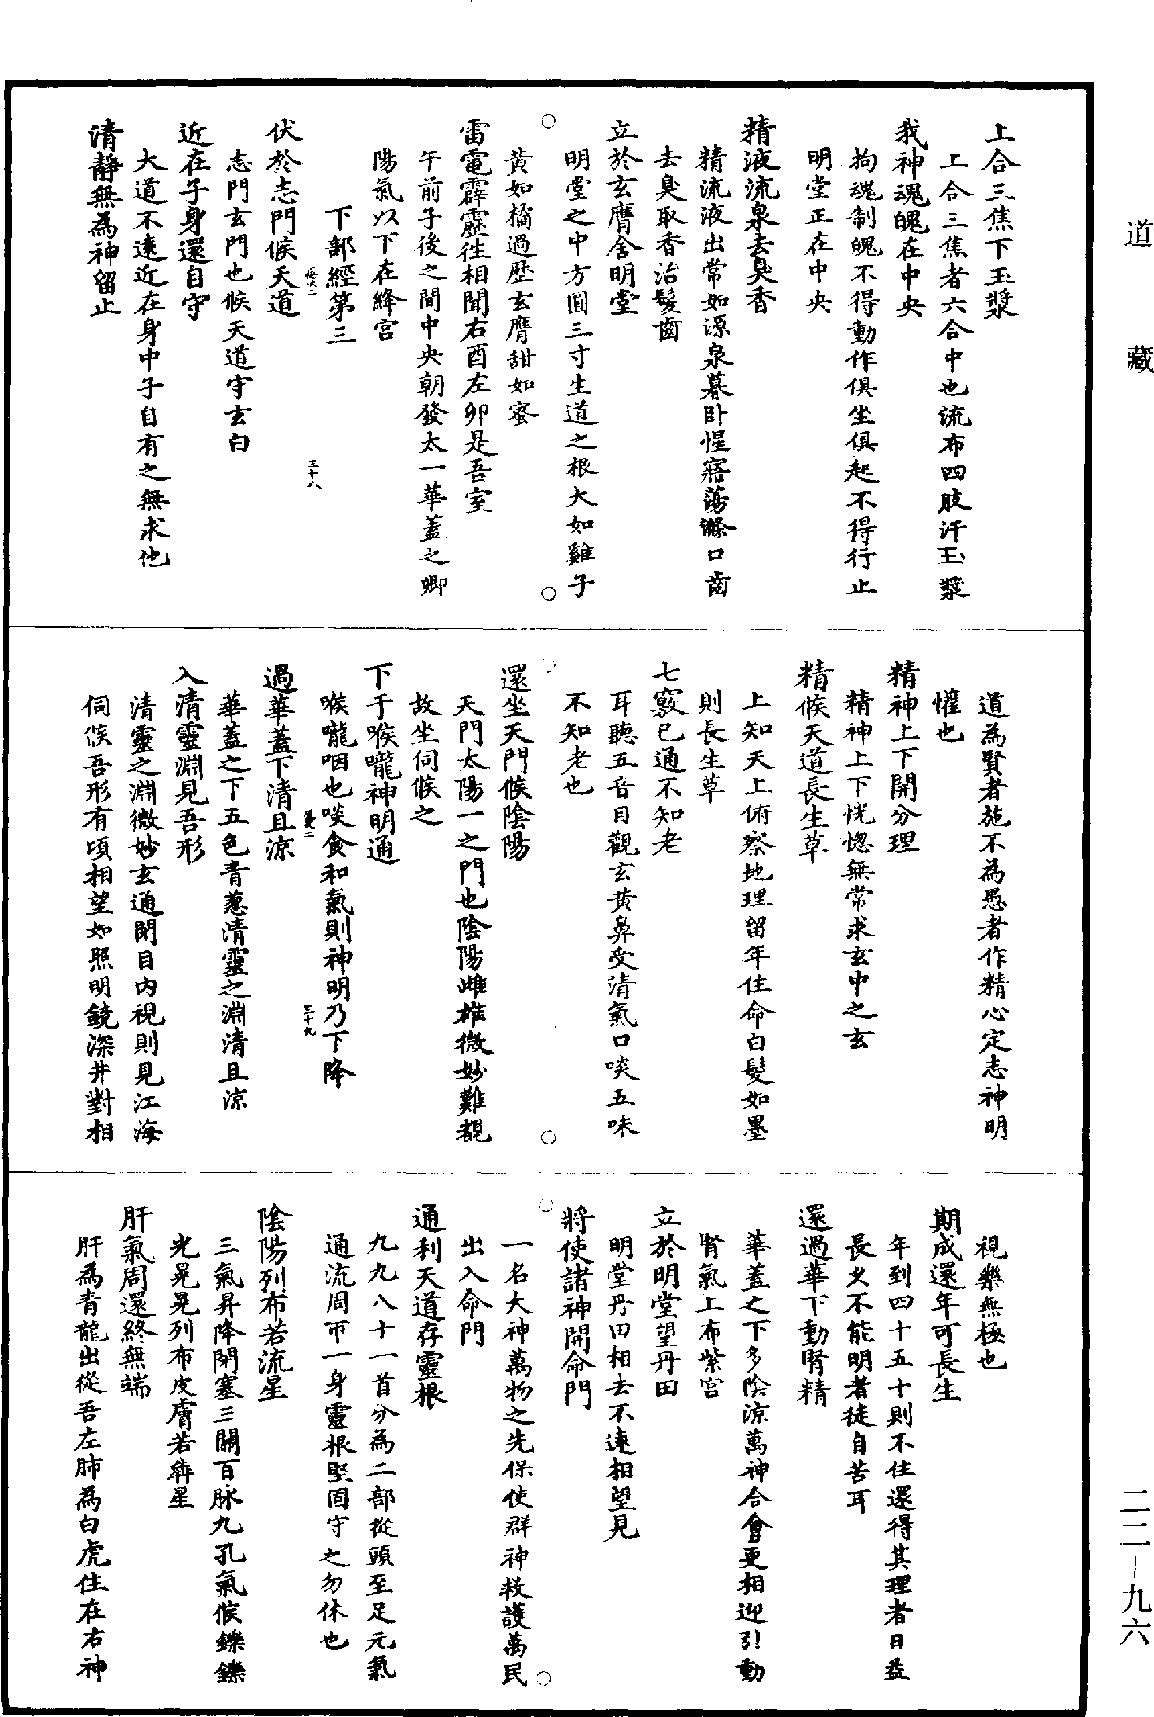 道藏
上合三焦下玉漿
上合三焦者六合中也流布四肢汗玉漿
我神魂魄在中央
拘魂制魄不得動作俱坐俱起不得行止
明堂正在中央
精液流泉去臭香
精流液出常如源泉暮卧惺寤蕩滌口齒
去臭取香治髮齒
立於玄膺含明堂
明堂之中方圓三寸生道之根大如雞子
黃如橘過歷玄膺甜如蜜
雷電霹靂往相聞右酉左卯是吾室
午前子後之間中央朝發太一華蓋之卿
陽氣以下在絳宮
下部經第三
三十八
伏於志門候天道
志門玄門也候天道守玄白
近在子身還自守
大道不遠近在身中子自有之無求他
清靜無為神留止
道為賢者施不為愚者作精心定志神明
懽也
精神上下開分理
精神上下恍惚無常求玄中之玄
精候天道長生草
上知天上俯察地理留年住命白髮如墨
則長生草
七竅已通不知老
耳聽五音目觀玄黃鼻受清氣口啖五味
不知老也
還坐天門候陰陽
天門太陽一之門也陰陽雌雄微妙難覩
故坐伺候之
下于喉嚨神明通
喉嚨咽也啖食和氣則神明乃下降
三十九
過華蓋下清且涼
華蓋之下五色青蔥清靈之淵清且涼
入清靈淵見吾形
清靈之淵微妙玄通閉目內視則見江海
伺候吾形有頃相望如照明鏡深井對相
視樂無極也
期成還年可長生
年到四十五十則不住還得其理者日益
長少不能明者徒自苦耳
還過華下動腎精
華蓋之下多陰涼萬神合會更相迎引動
腎氣上布紫宮
立於明堂望丹田
明堂丹田相去不遠相望見
將使諸神開命門
一名大神萬物之先保使群神救護萬民
出入命門
通利天道存靈根
九九八十一首分為二部從頭至足元氣
通流周帀一身靈根堅固守之勿休也
陰陽列布若流星
三氣昇降閉塞三關百脉九孔氣候鑠鑠
光晃晃列布皮膚若犇星
肝氣周還終無端
肝為青龍出從吾左肺為白虎住在右神
二二-九六